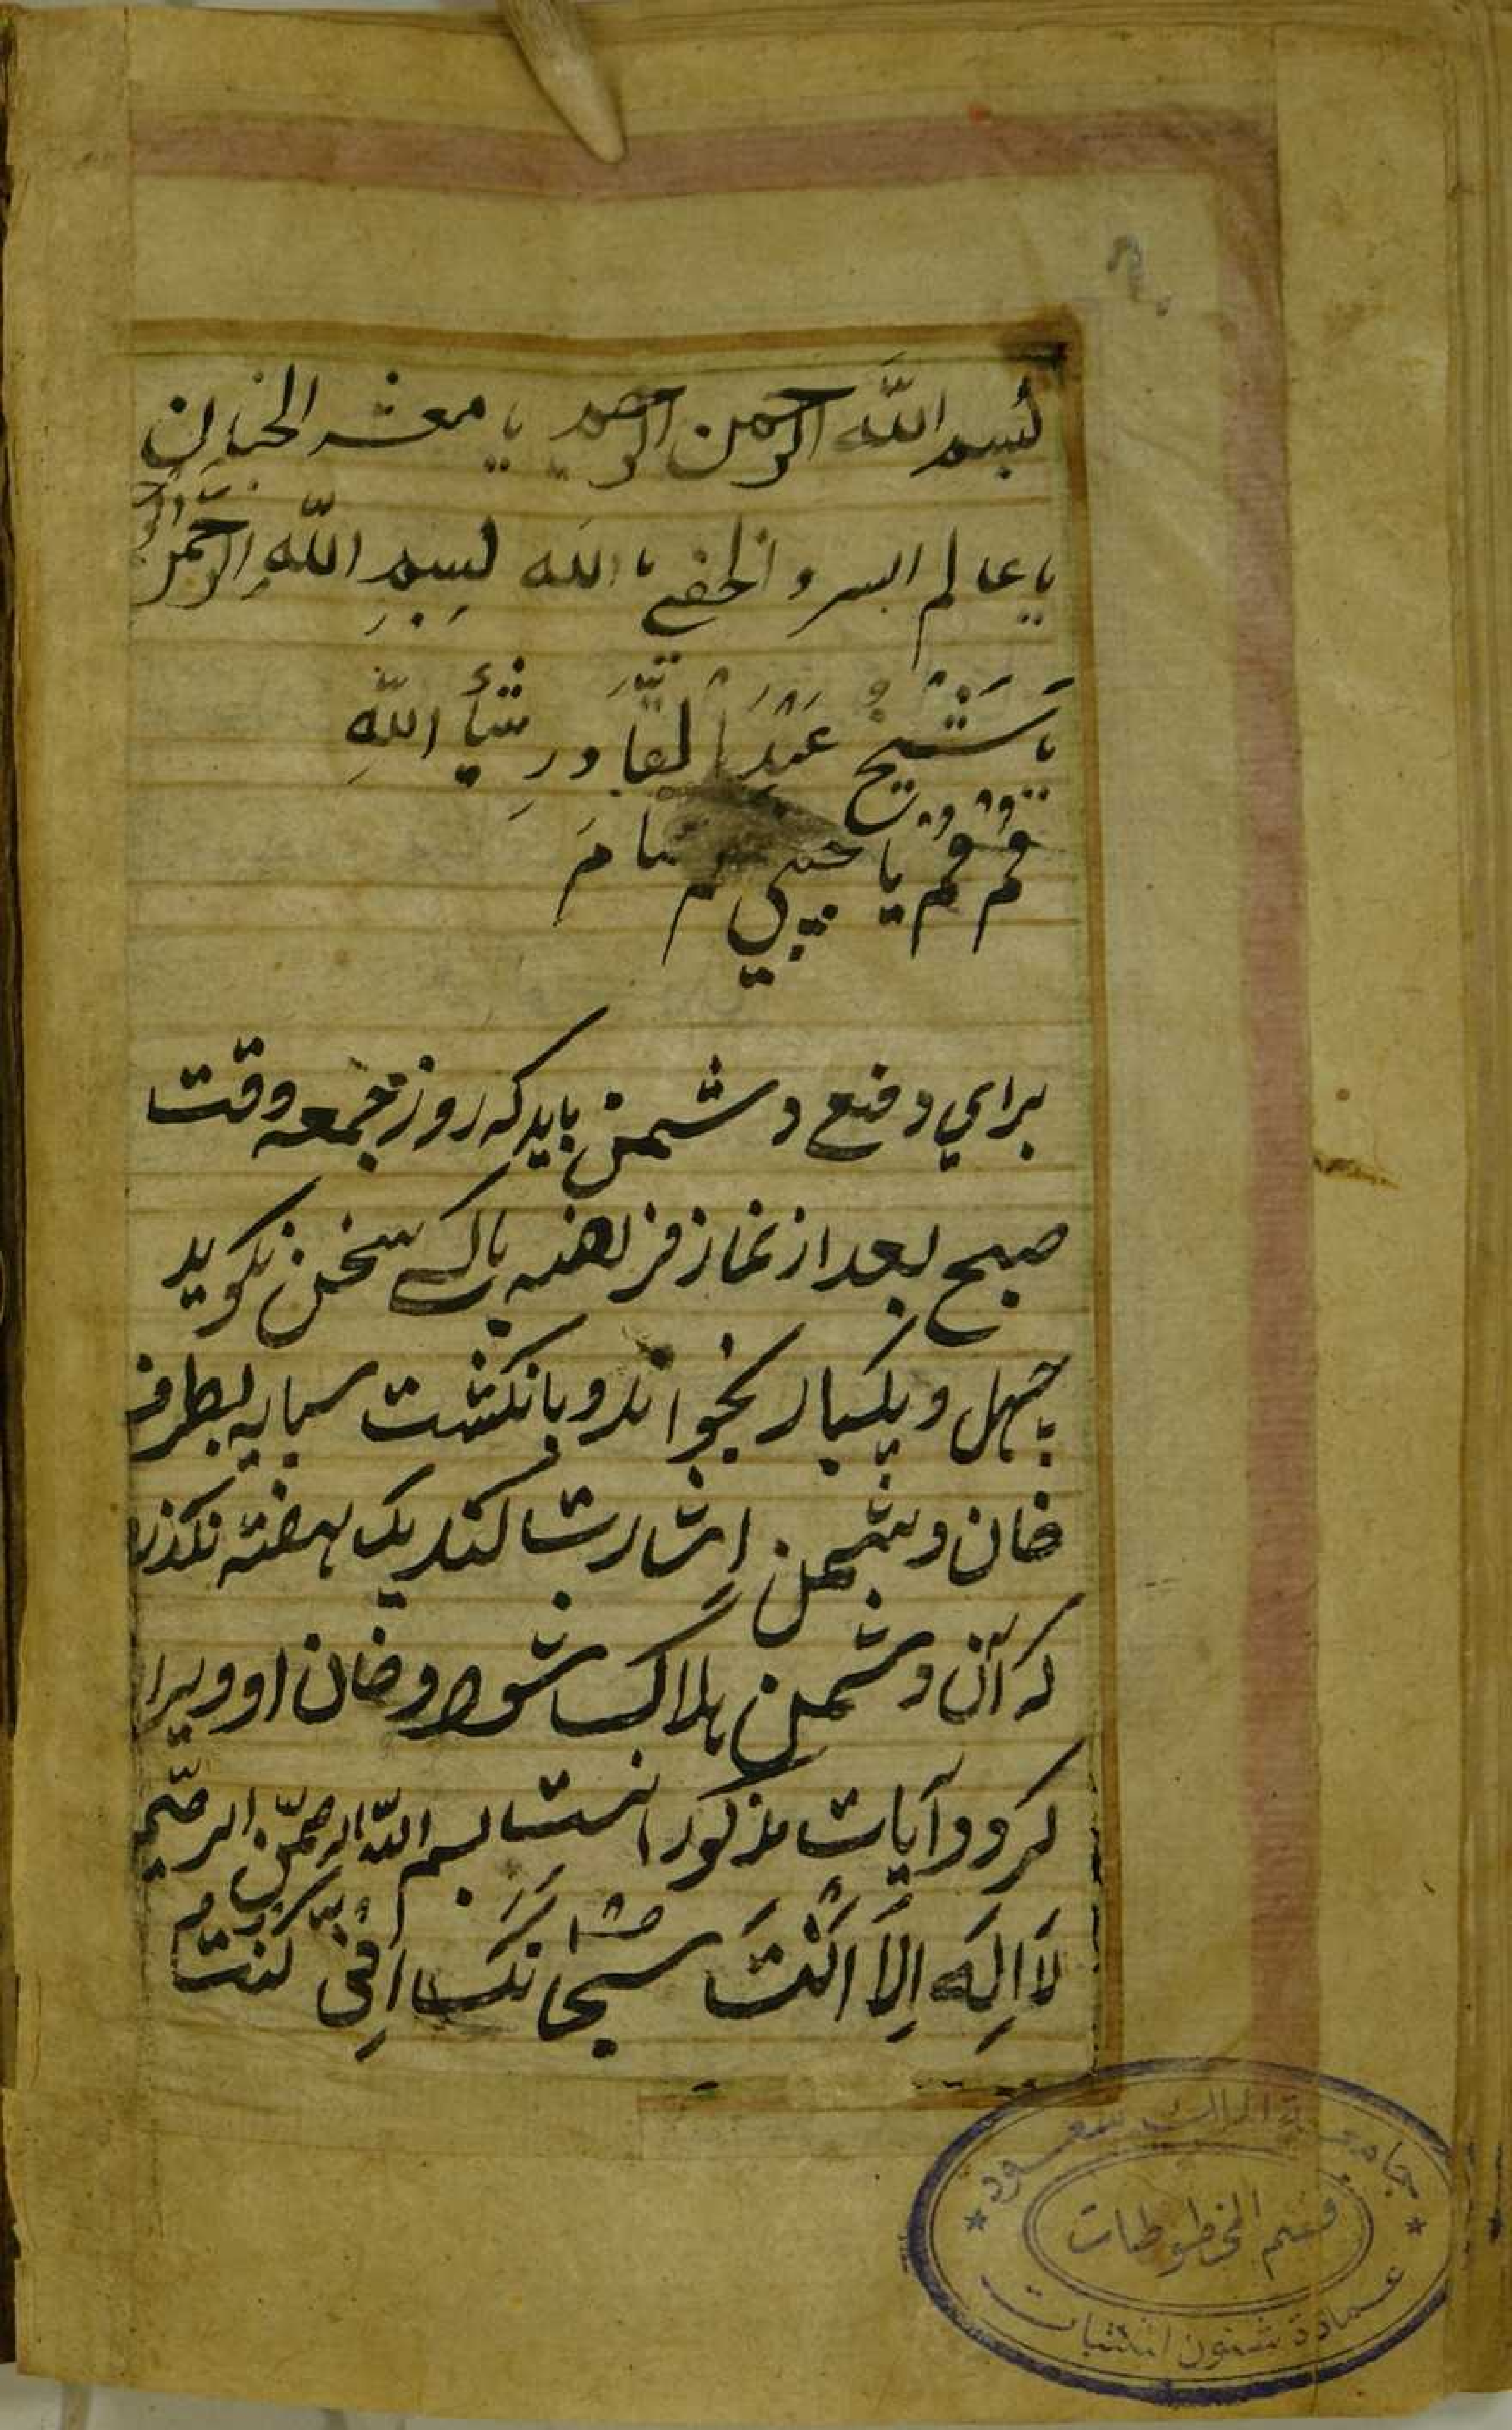 بسم الله الرحمن الرحيم يا معشر الجنان
يا عالم السر و الخفي يا الله بسم الله الرحمن
يا شيخ عبد القادر شيأ الله
قم قم يا حبيبي كم تنام
براي دفع دشمن بايد كه روز جمعه وقت
صبح بعد از نماز فريضه باكسي سخن نكويد
چهل و يكبار بخواند و بانكشت سبابه بطرف
خان دشمن اشارت كند يك هفته نكذرد
كه آن دشمن هلاك شود و خان او ويرا
كردد و آيات مذكور اينست بسم الله الرحمن الرحيم
لا اله الا انت سبحانك اني كنت
جامعة الملك سعود
قسم المخطوطات
عمادة شئون المكتبات